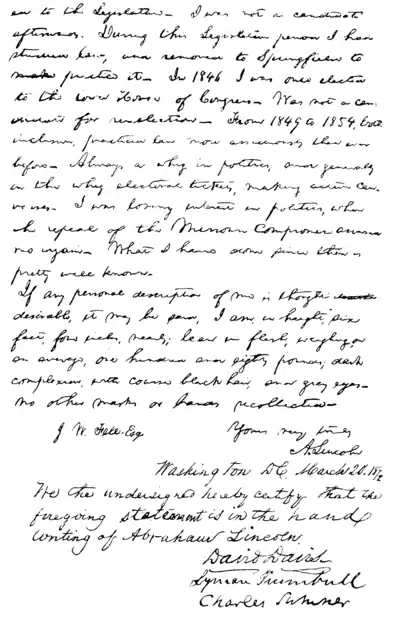 ion to the Legislature. I was not a candidate
afterwards. During this Legislative period I had
studied law, and removed to Springfield to
make practice it. In 1846 I was once elected
to the lower House of Congress. Was not a can-
didate for re-election. From 1849 to 1854, both
inclusive, practiced law more assiduously than ever
before. Always a whig in politics, and generally
on the whig electoral tickets, making active can-
vasses. I was losing interest in politics, when
the repeal of the Missouri Compromise aroused
me again. What I have done since then is
pretty well known.
If any personal description of me is thought
desirable, it may be said, I am, in height, six
feet, four inches, nearly; lean in flesh, weighing, on
an average, one hundred and eighty pounds; dark
complexion, with coarse black hair, and grey eyes.
no other marks or brands recollected.
J. W. Fell. Esq. Yours very truly
A. Lincoln
Washington DC March 20. 1872
We the undersigned hereby certify that the
foregoing statement is in the hand
writing of Abraham Lincoln.
David Davis
Lyman Trumbull
Charles Sumner